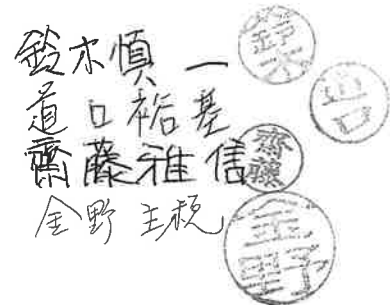 鈴木慎一 鈴木
道口裕基 道口
齋藤雅信 齋藤
金野 金野